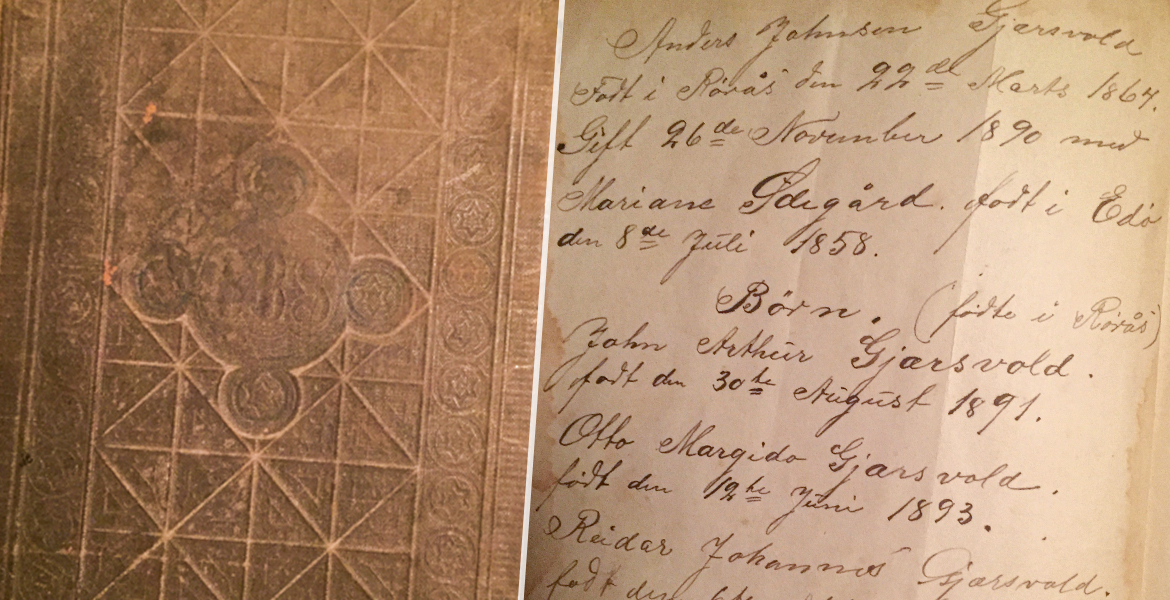 Anders Johnsen Gjærsvold
Født i Rörås den 22de Marts 1864.
Gift 26de November 1890 med
Mariane Ödegård. födt i Edö
den 8de Juli 1858.
Börn. (födte i Rörås)
John Arthur Gjærsvold.
födt den 30te August 1891.
Otto Margido Gjærsvold.
födt den 12te Juni 1893.
Reidar Johannes Gjærsvold.
födt den